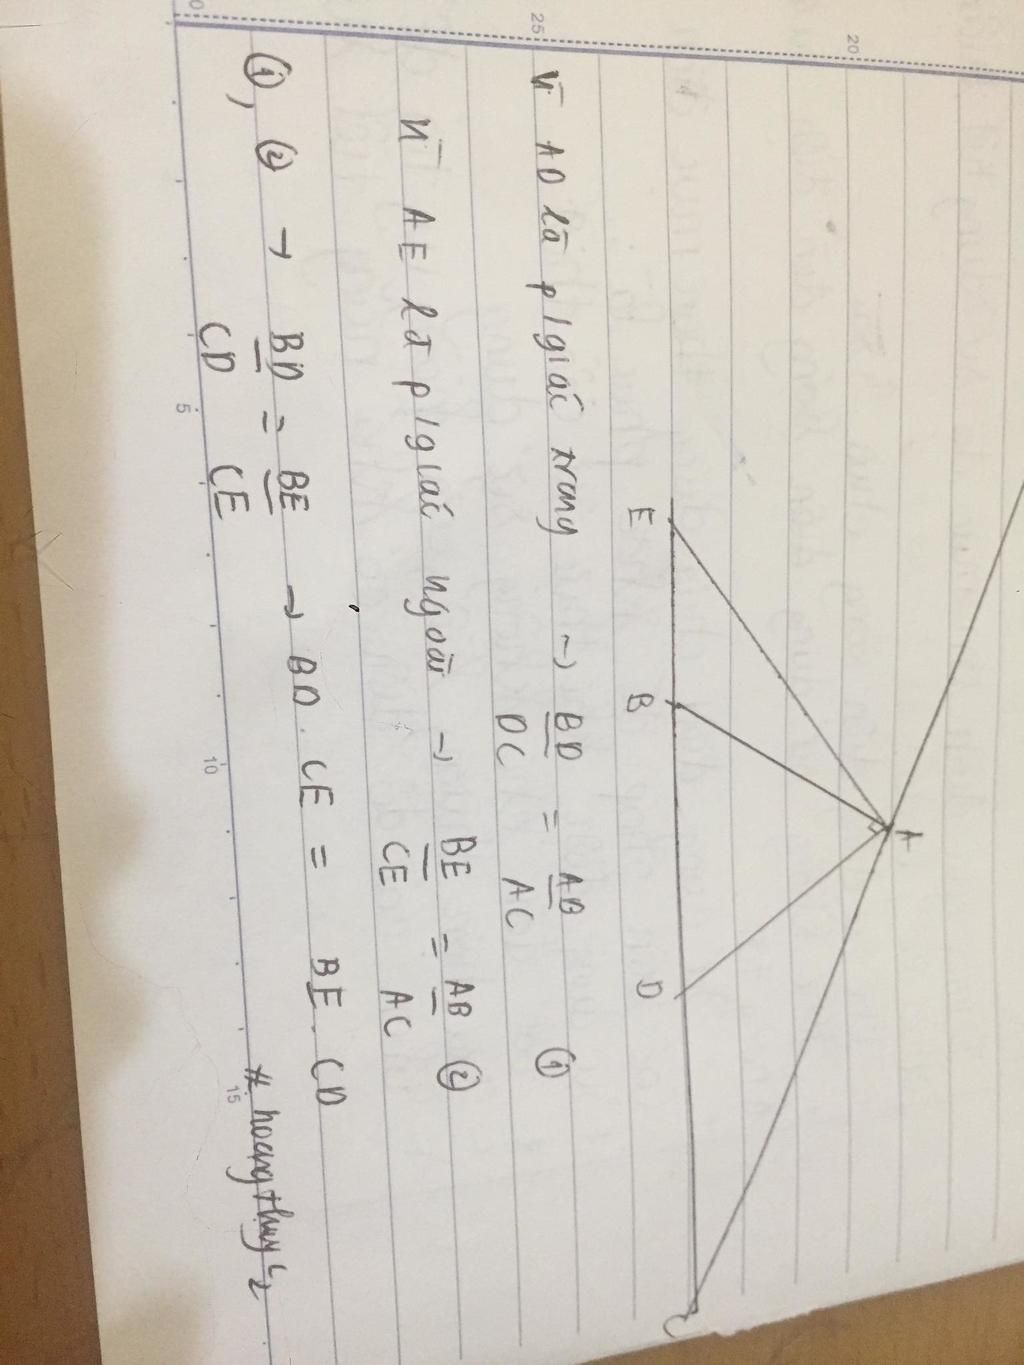 A
E B D C
Vì AD là p/giác trong → BD/DC = AB/AC ①
Vì AE là p/giác ngoài → BE/CE = AB/AC ②
①, ② → BD/CD = BE/CE → BD . CE = BE . CD
# hoangthuy
0 5 10 15
20 25